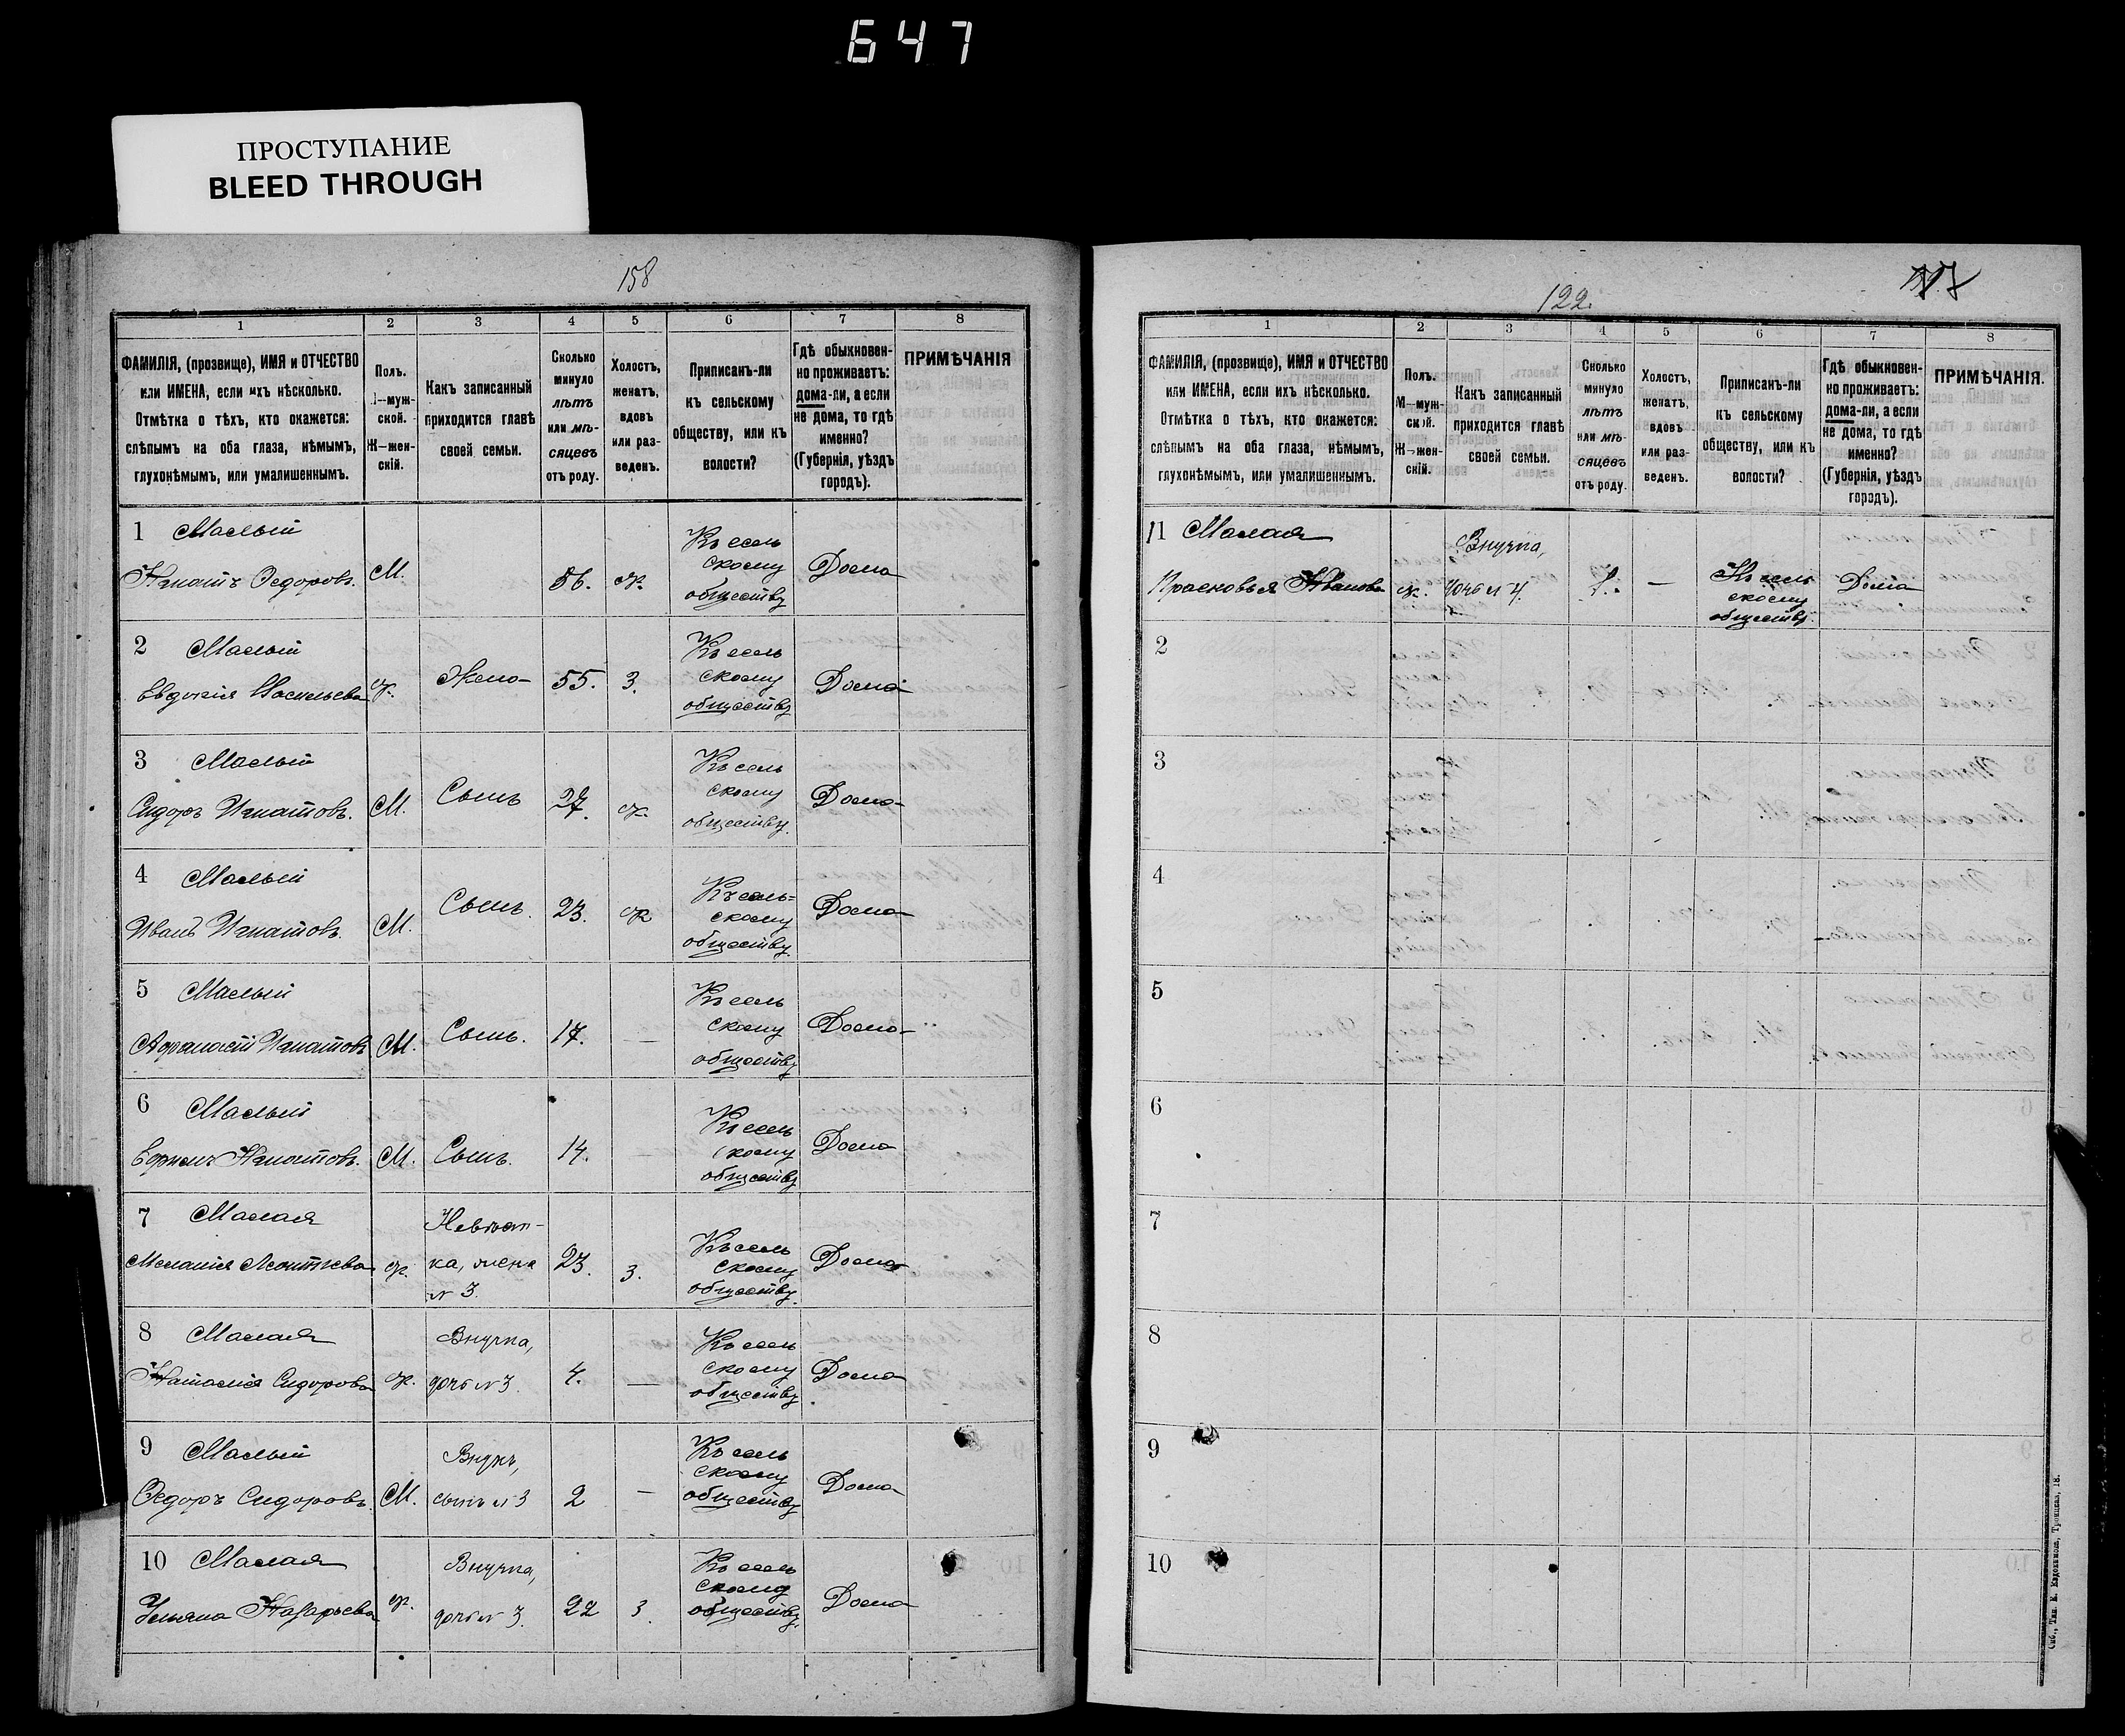 647
ПРОСТУПАНИЕ
BLEED THROUGH
158
1 2 3 4 5 6 7 8
ФАМИЛІЯ, (прозвище), ИМЯ и ОТЧЕСТВО
или ИМЕНА, если ихъ нѣсколько.
Отмѣтка о тѣхъ, кто окажется:
слѣпымъ на оба глаза, нѣмымъ,
глухонѣмымъ, или умалишеннымъ.
Полъ.
М—муж-
ской.
Ж—жен-
скій.
Какъ записанный
приходится главѣ
своей семьи.
Сколько
минуло
лѣтъ
или мѣ-
сяцевъ
отъ роду.
Холостъ,
женатъ,
вдовъ
или раз-
веденъ.
Приписанъ-ли
къ сельскому
обществу, или къ
волости?
Гдѣ обыкновен-
но проживаетъ:
дома-ли, а если
не дома, то гдѣ
именно?
(Губернія, уѣздъ
городъ).
ПРИМѢЧАНІЯ
1 Малый
Игнатъ Ѳедоровъ. М. 56. ж. Къ сель
скому
обществу Дома
2 Малый
Евдокія Васильева ж. Жена 55. З. Къ сель
скому
обществу Дома
3 Малый
Сидоръ Игнатовъ. М. Сынъ 27. ж. Къ сель
скому
обществу. Дома
4 Малый
Иванъ Игнатовъ. М. Сынъ. 23. ж Къ сель=
скому
обществу. Дома
5 Малый
Афанасій Игнатовъ М. Сынъ. 17. — Къ сель
скому
обществу Дома
6 Малый
Ефимъ Игнатовъ. М. Сынъ. 14. — Къ сель
скому
обществу Дома
7 Малая
Меланія Леонтьева ж. Невѣст-
ка, жена
№ 3. 23. З. Къ сель
скому
обществу. Дома
8 Малая
Наталія Сидорова ж. Внучка,
дочь № 3. 4. — Къ сель
скому
обществу Дома
9 Малый
Ѳедоръ Сидоровъ. М. Внукъ,
сынъ № 3 2 — Къ сель
скому
обществу Дома
10 Малая
Ульяна Назарьева ж. Внучка,
дочь № 3. 22 З Къ сель
скому
обществу. Дома
122.
1 2 3 4 5 6 7 8
ФАМИЛІЯ, (прозвище), ИМЯ и ОТЧЕСТВО
или ИМЕНА, если ихъ нѣсколько.
Отмѣтка о тѣхъ, кто окажется:
слѣпымъ на оба глаза, нѣмымъ,
глухонѣмымъ, или умалишеннымъ.
Полъ.
М—муж-
ской.
Ж—жен-
скій.
Какъ записанный
приходится главѣ
своей семьи.
Сколько
минуло
лѣтъ
или мѣ-
сяцевъ
отъ роду.
Холостъ,
женатъ,
вдовъ
или раз-
веденъ.
Приписанъ-ли
къ сельскому
обществу, или къ
волости?
Гдѣ обыкновен-
но проживаетъ:
дома-ли, а если
не дома, то гдѣ
именно?
(Губернія, уѣздъ
городъ).
ПРИМѢЧАНІЯ.
11 Малая
Прасковья Иванова ж. Внучка,
дочь № 4. 1. — Къ сель
скому
обществу. Дома
2
3
4
5
6
7
8
9
10